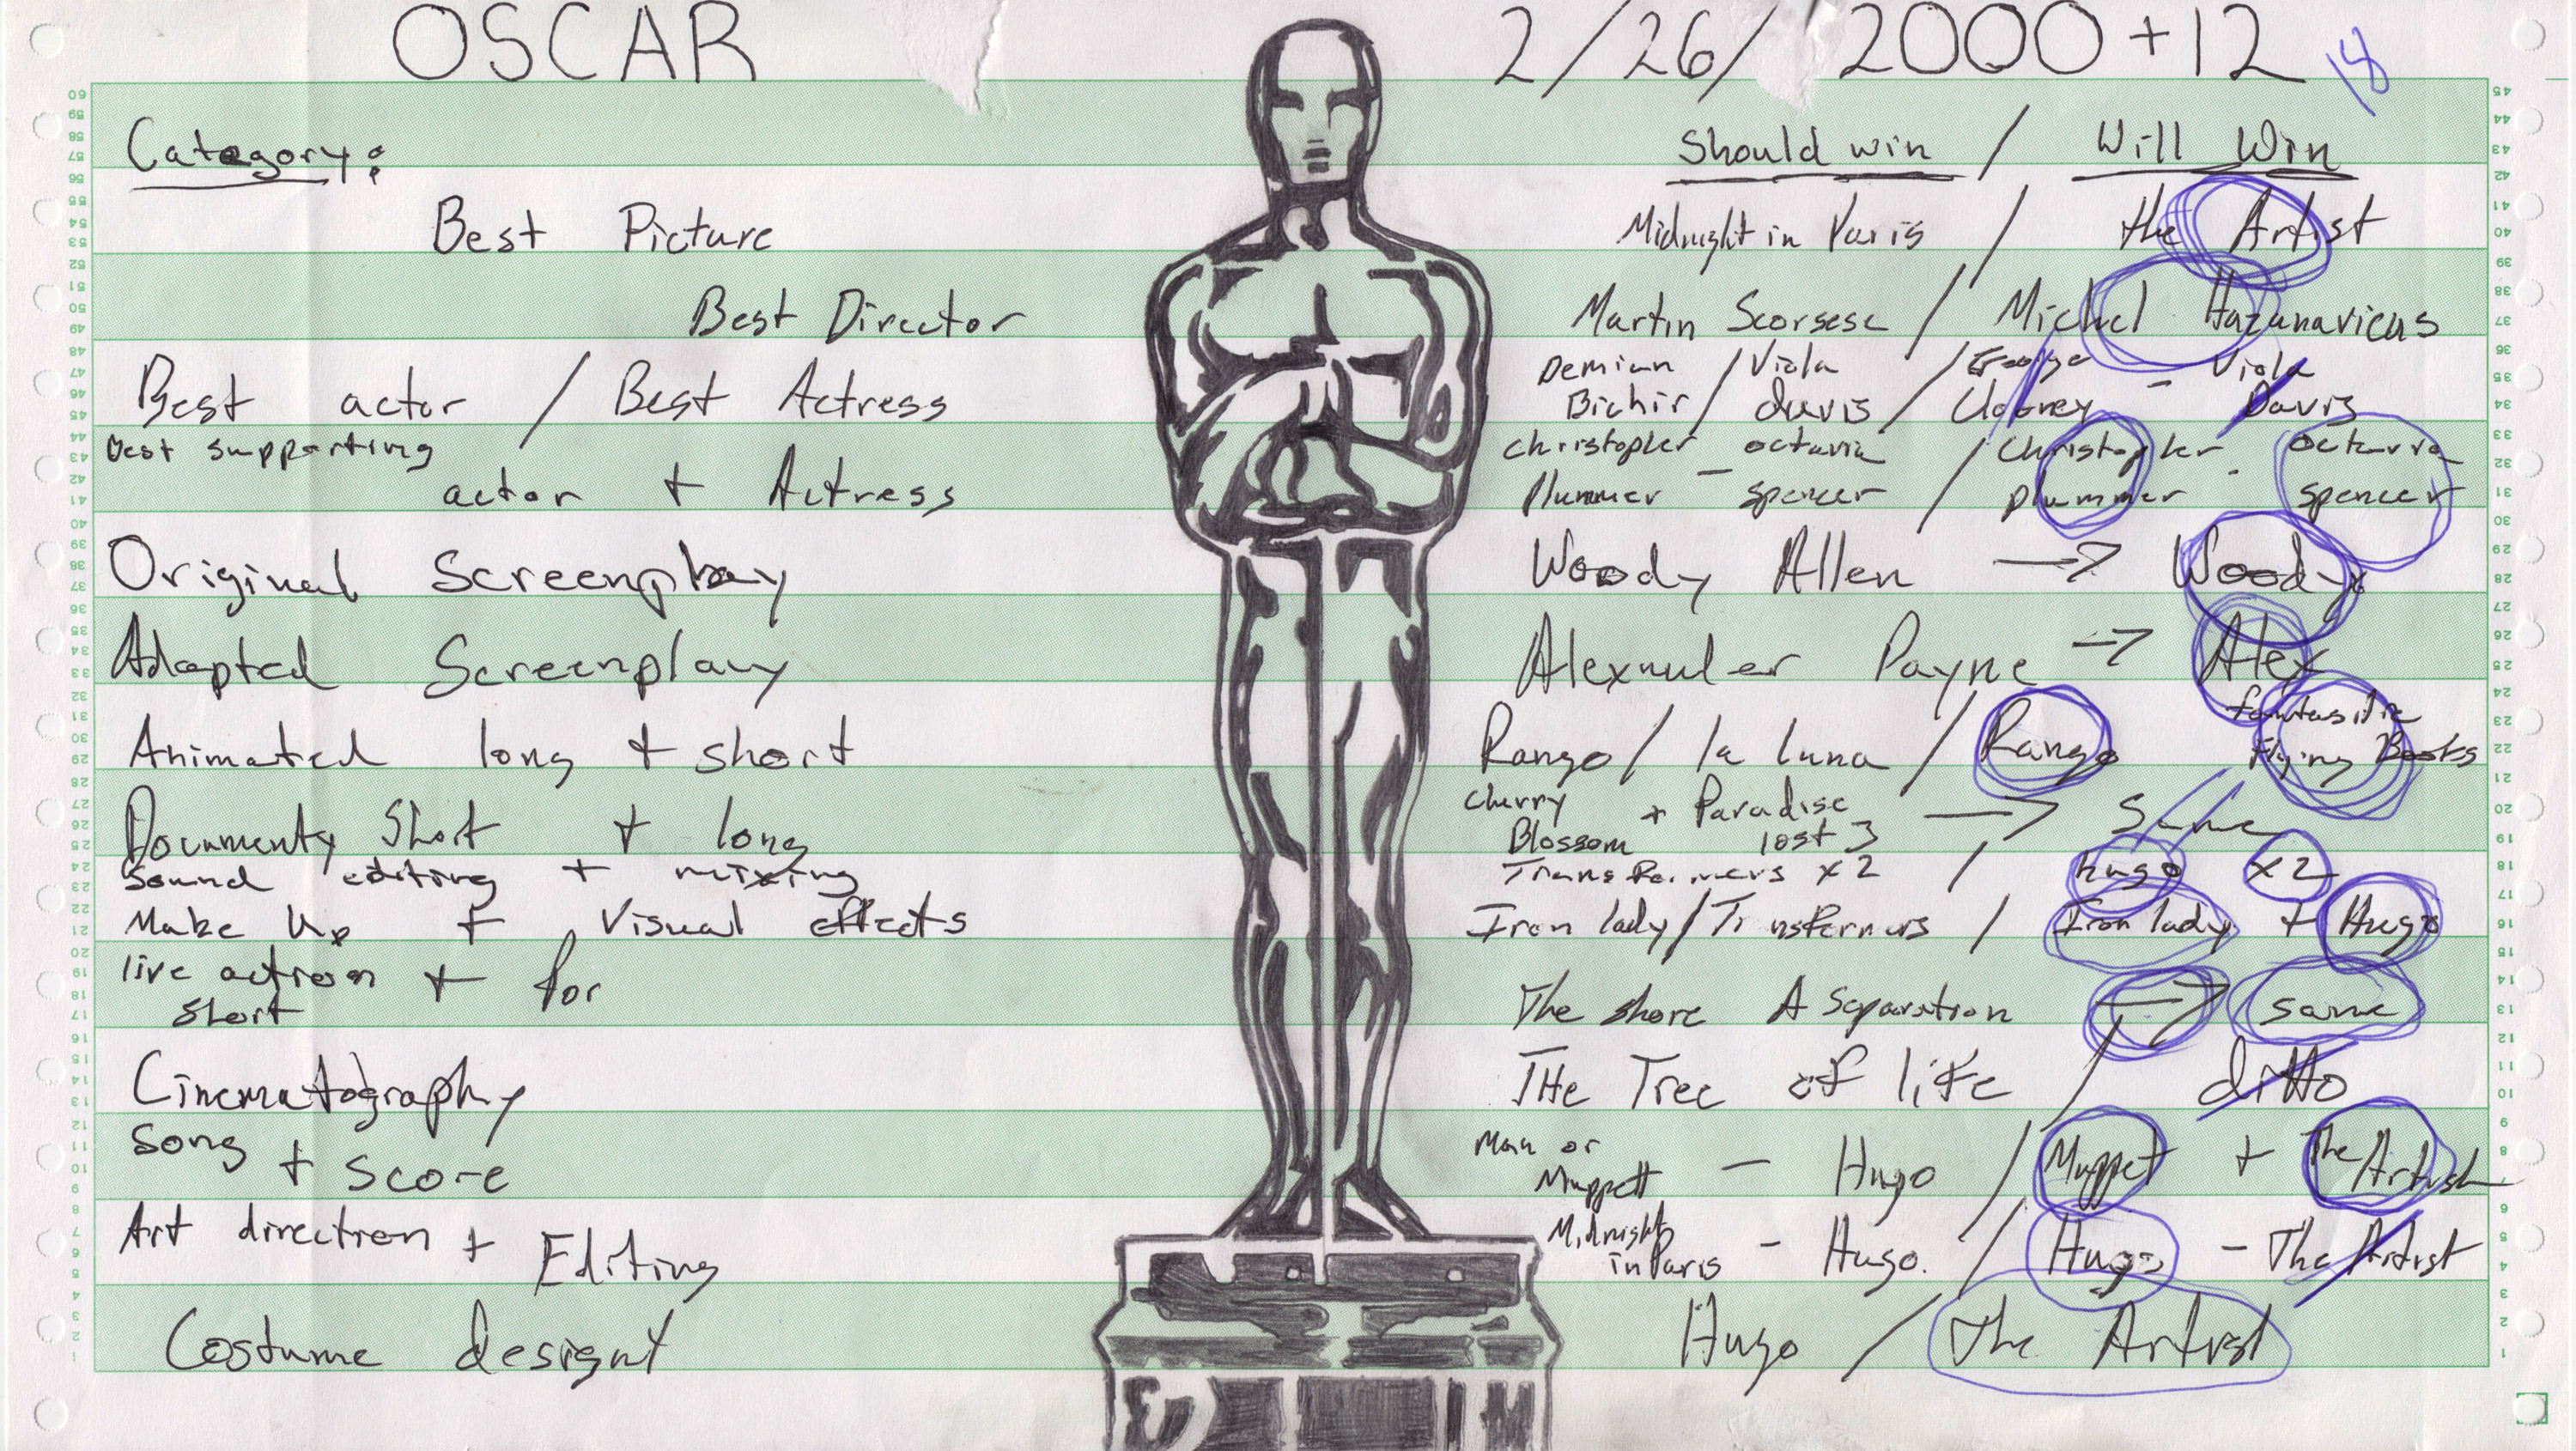 OSCAR 2/26/2000+12 18
Category: Should win / Will Win
Best Picture Midnight in Paris / the Artist
Best Director Martin Scorsese / Michel Hazanavicus
Best actor / Best Actress Demian Bichir / Viola davis / George Clooney - Viola Davis
Best supporting actor + Actress Christopher Plummer - octavia spencer / Christopher plummer - octavia spencer
Original Screenplay Woody Allen → Woody
Adapted Screenplay Payne → Alex
Animated long + short Rango / la luna / Rango fantastic Flying Books
Documenty Short + long Cherry Blossom + Paradise lost 3 → Same
Sound editing + mixing Transformers x2 / hugo x2
Make Up + Visual effects Iron lady / / Iron lady + Hugo
live action short + for The shore A Separation → same
Cinematography THe Tree of life / ditto
Song + Score Man or Muppett - Hugo / Muppet + The Artist
Art direction + Editing Midnight in Paris - Hugo. / Hugo - The Artist
Costume Hugo / The Artist